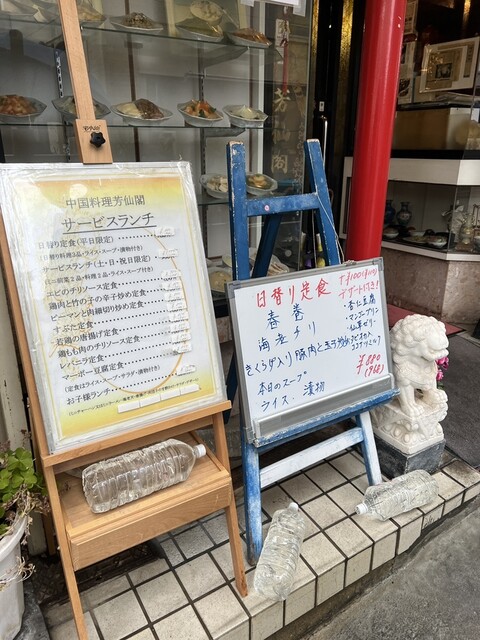 中国料理芳仙閣
サービスランチ
日替り定食(平日限定)
(日替り料理3品・ライス・スープ・漬物付)
サービスランチ(土・日・祝日限定)
(ミニ前菜2品+料理2品・ライス・スープ付き)
エビのチリソース定食
鶏肉と竹の子の辛子炒め定食
ピーマンと肉細切り炒め定食
すぶた定食
若鶏の唐揚げ定食
鶏もも肉のチリソース定食
レバニラ定食
マーボー豆腐定食
(定食はライス・スープ・サラダ・漬物付き)
お子様ランチ
日替り定食
春巻
海老チリ
きくらげ入り豚肉と玉子炒め
本日のスープ
ライス 漬物
デザート付き!
・杏仁豆腐
・マンゴープリン
・仙草ゼリー
¥880
(968)
芳仙閣